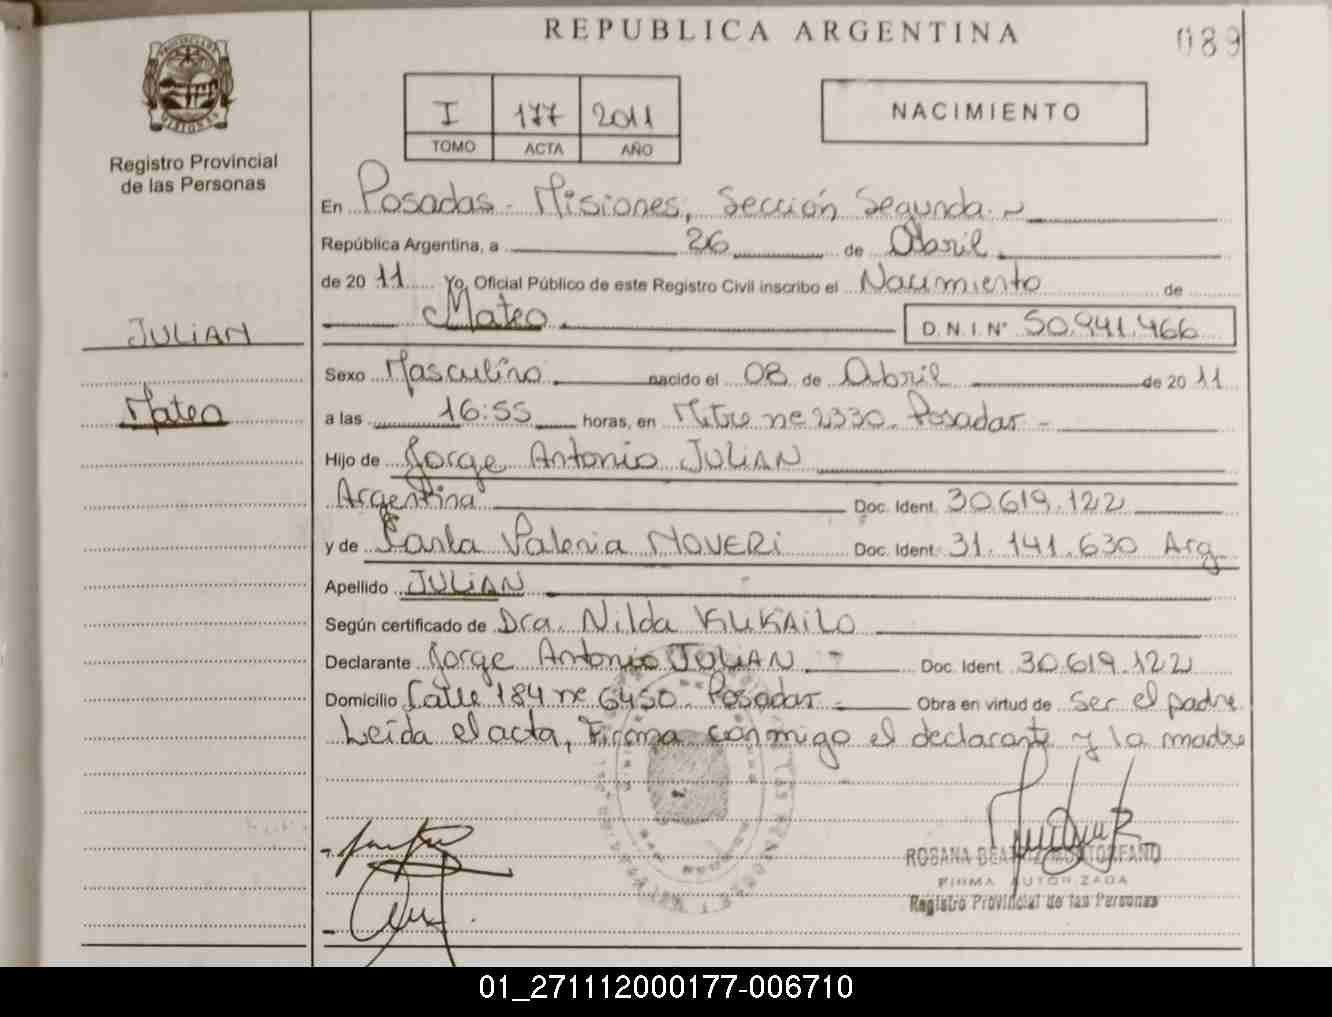 REPUBLICA ARGENTINA
089
Registro Provincial
de las Personas
I 177 2011
TOMO ACTA AÑO
NACIMIENTO
JULIAN
Mateo
En Posadas - Misiones, Sección Segunda.
República Argentina, a 26 de Abril
de 2011 Yo, Oficial Público de este Registro Civil inscribo el Nacimiento de
Mateo D.N.I.N° 50.941.466
Sexo Masculino nacido el 08 de Abril de 2011
a las 16:55 horas, en Mitre nº 2330. Posadas -
Hijo de Jorge Antonio JULIAN
Argentina Doc. Ident. 30.619.122
y de Valeria MOVERI Doc. Ident. 31.141.630 Arg
Apellido JULIAN
Según certificado de Dra. Nilda KUKAILO
Declarante Jorge Antonio JULIAN Doc. Ident. 30.619.122
Domicilio Calle 184 nº 6450. Posadas Obra en virtud de ser el padre
Leída el acta, Firma conmigo el declarante y la madre
ROSANA
FIRMA AUTORIZADA
Registro Provincial de las Personas
01_271112000177-006710